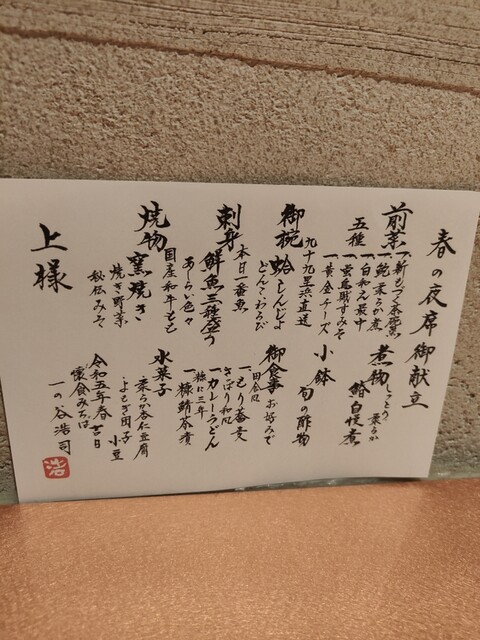 春の衣席御献立
前菜
五種
一、新もづく茶碗蒸
一、鮑柔らか煮
一、白和え最中
一、蛍烏賊すみそ
一、黄金チーズ
御椀
蛤しんじょ
九十九里浜直送
刺身
本日一番魚
鮮魚三種盛り
あしらい色々
焼物
国産和牛もも
窯焼き
焼き野菜
秘伝みそ
煮物
柔らか
鰆白味煮
小鉢
旬の酢物
御食事
お好みで
一、もり蕎麦
田舎風
さっぱり和風
一、カレーうどん
糠に三年
一、糠鯖茶漬
水菓子
柔らか杏仁豆腐
よもぎ団子 小豆
令和五年春吉日
懐食みちば
一の谷浩司
浩
上様